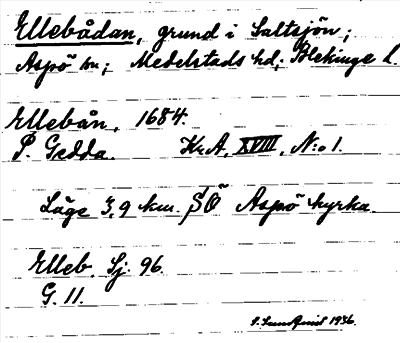 Ellebådan, grund i Saltsjön;
Aspö sn; Medelstads hd; Blekinge l.
Ellebån, 1684.
P. Gedda. Kr.A. XVIII, N:o 1.
Läge 3,9 km. SÖ Aspö kyrka.
Elleb. Sj. 96.
G. 11.
1936.